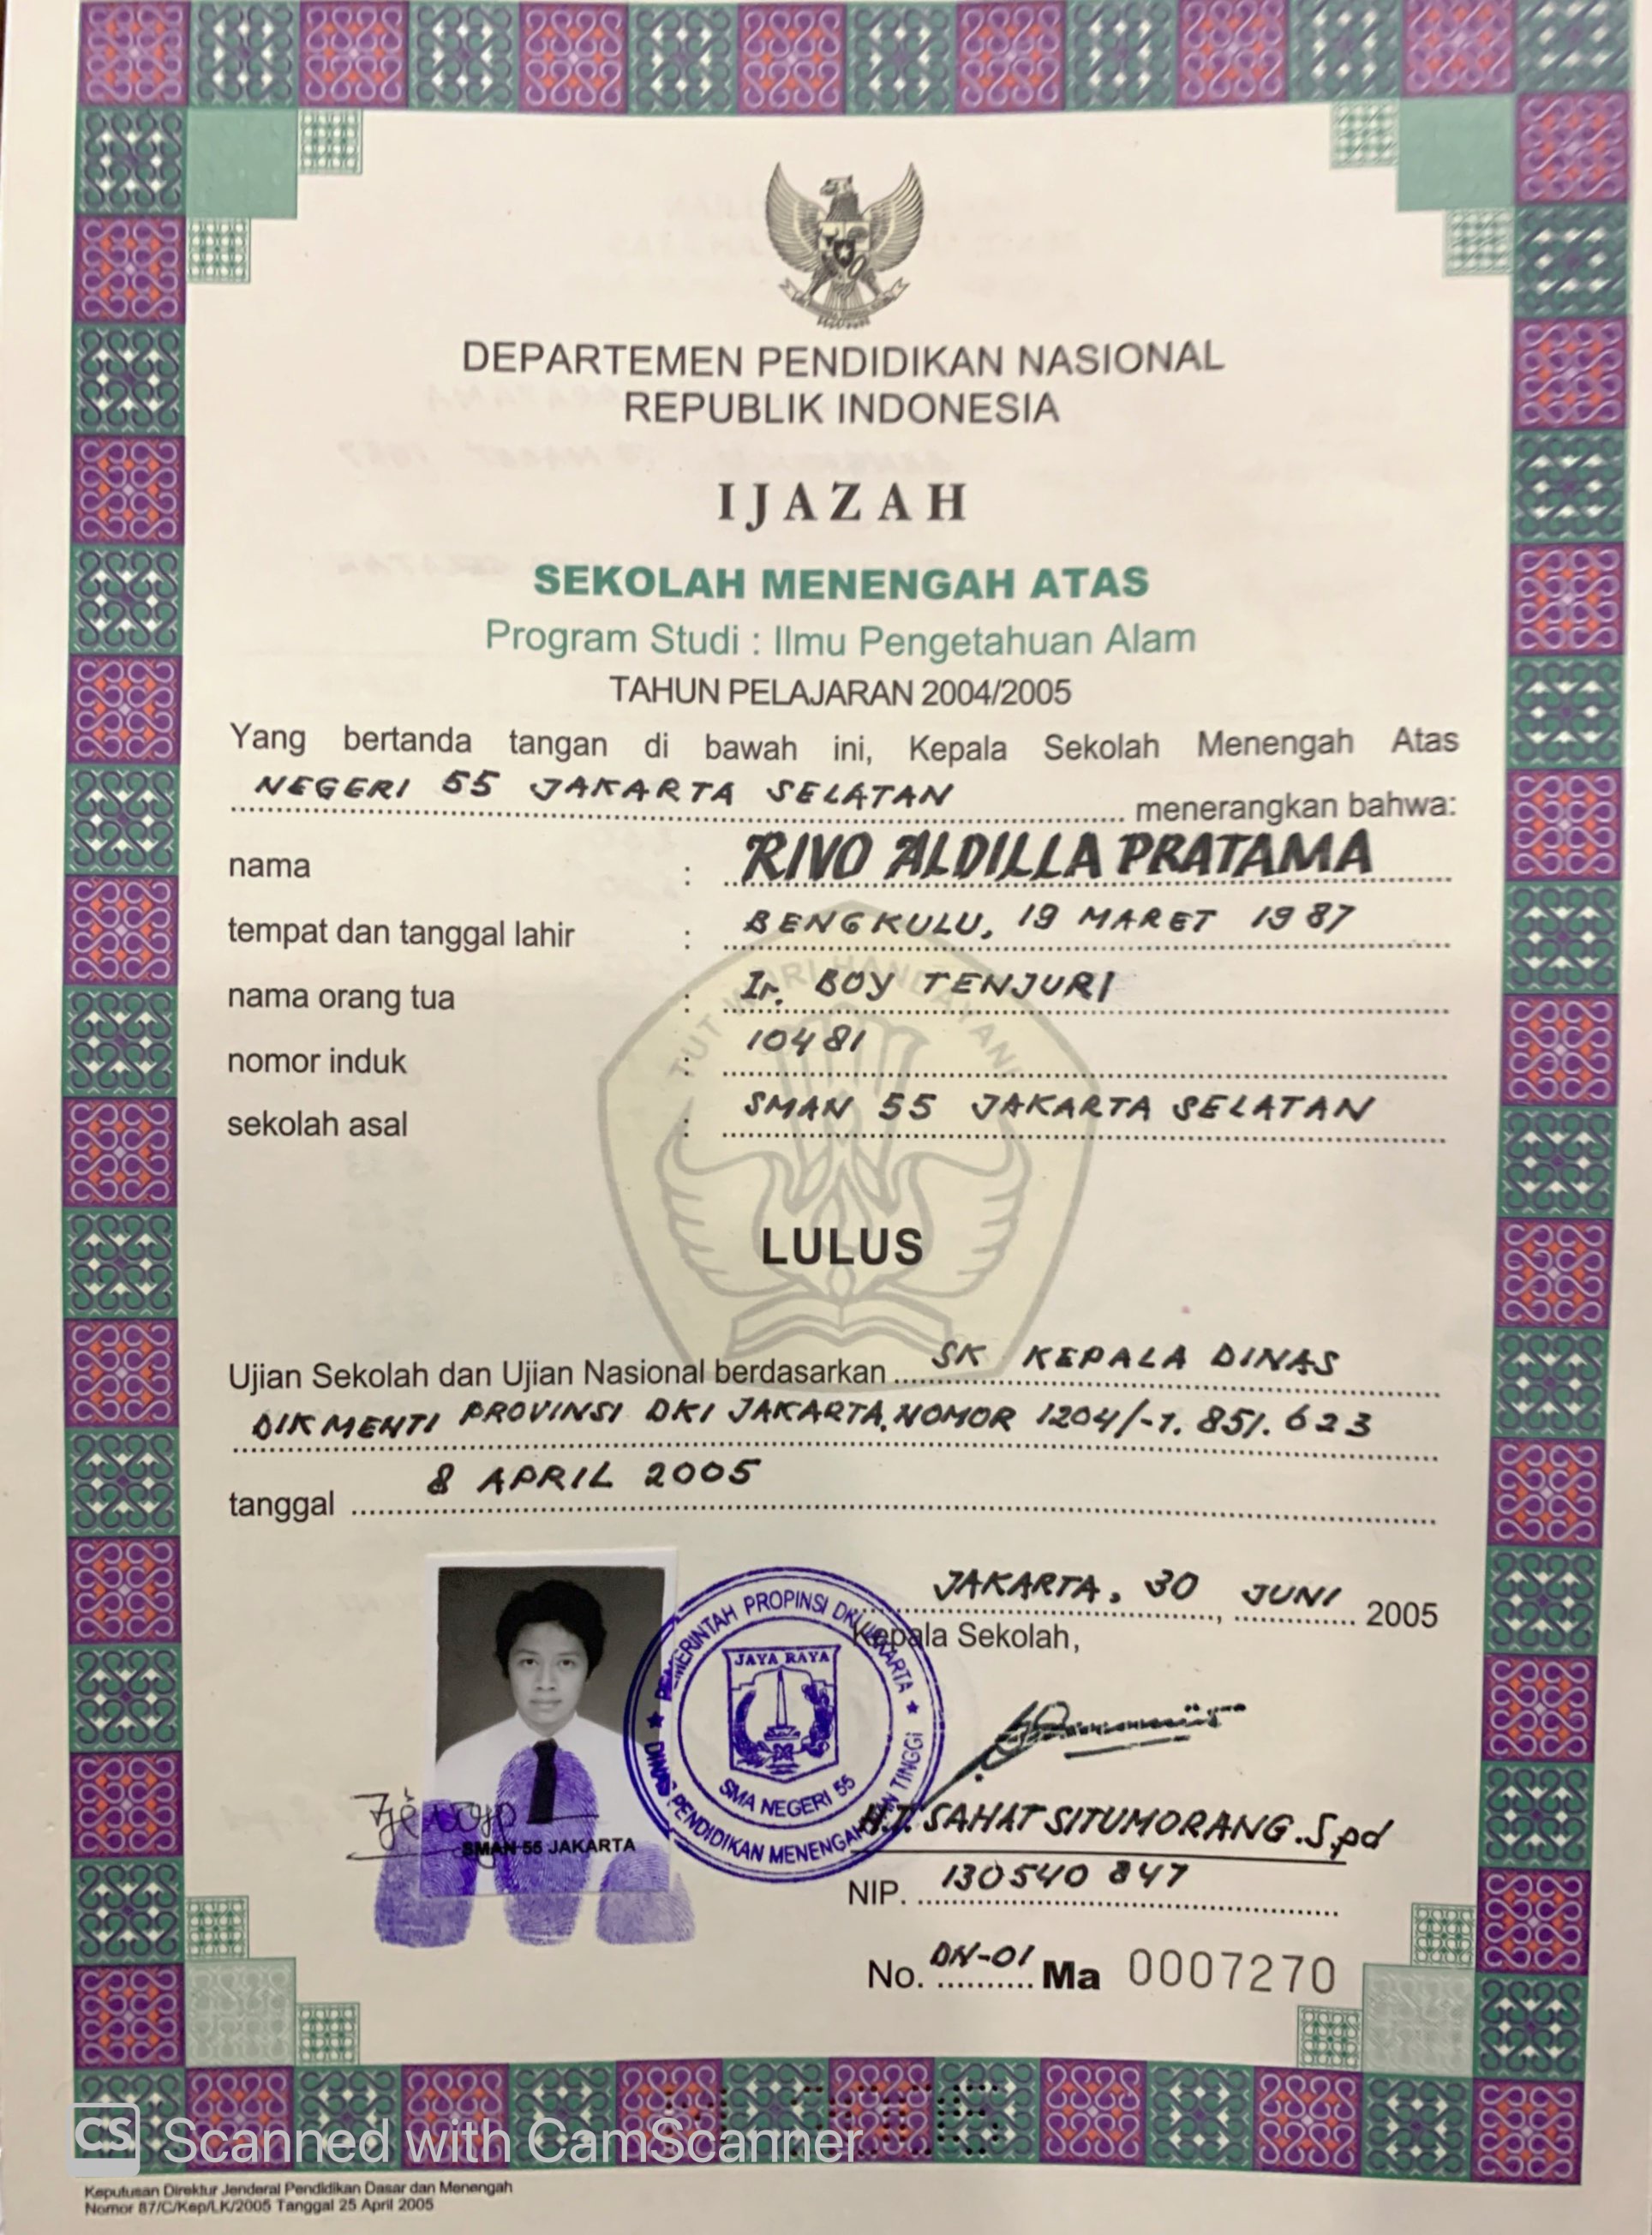 DEPARTEMEN PENDIDIKAN NASIONAL
REPUBLIK INDONESIA
IJAZAH
SEKOLAH MENENGAH ATAS
Program Studi : Ilmu Pengetahuan Alam
TAHUN PELAJARAN 2004/2005
Yang bertanda tangan di bawah ini, Kepala Sekolah Menengah Atas
NEGERI 55 JAKARTA SELATAN menerangkan bahwa:
nama : RIVO ALDILLA PRATAMA
tempat dan tanggal lahir : BENGKULU, 19 MARET 1987
nama orang tua : Ir. BOY TENJURI
nomor induk : 10481
sekolah asal : SMAN 55 JAKARTA SELATAN
TUT WURI HANDAYANI
LULUS
Ujian Sekolah dan Ujian Nasional berdasarkan SK KEPALA DINAS
DIKMENTI PROVINSI DKI JAKARTA, NOMOR 1204/-1.851.623
tanggal 8 APRIL 2005
JAKARTA, 30, JUNI 2005
Kepala Sekolah,
PEMERINTAH PROPINSI DKI JAKARTA
JAYA RAYA
SMA NEGERI 55
DINAS PENDIDIKAN MENENGAH DAN TINGGI
SMAN 55 JAKARTA
H.J. SAHAT SITUMORANG.S.pd
NIP. 130540 847
No. DN-01 Ma 0007270
CS Scanned with CamScanner
Keputusan Direktur Jenderal Pendidikan Dasar dan Menengah
Nomor 87/C/Kep/LK/2005 Tanggal 25 April 2005